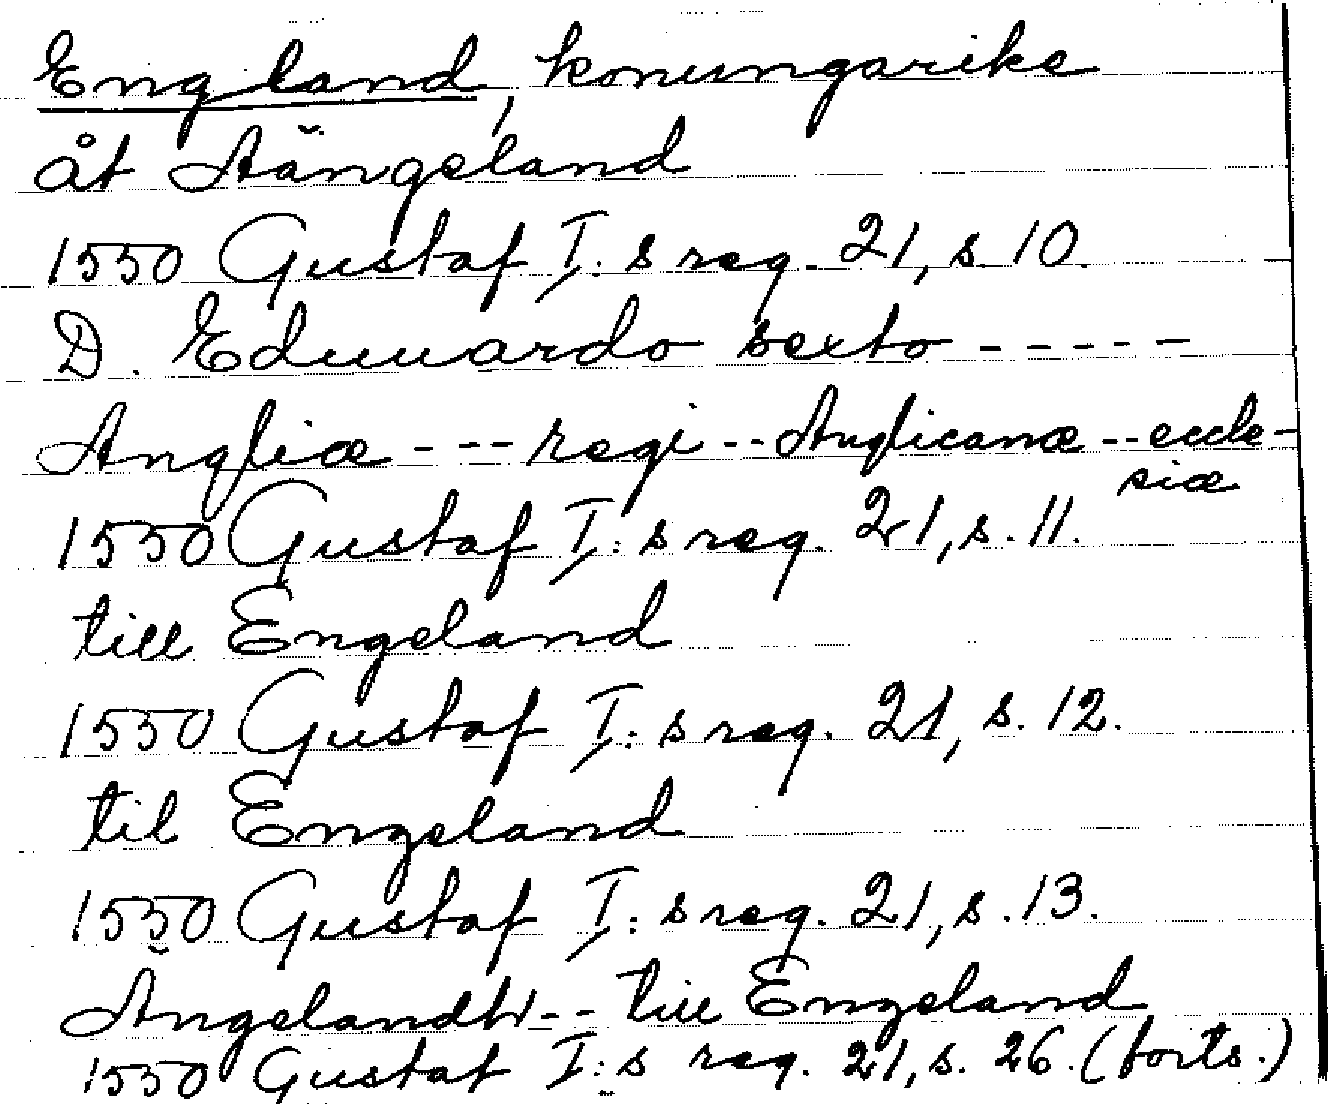 England, konungarike
åt Aängeland
1550 Gustaf I:s reg. 21, s. 10.
D. Eduuardo sexto -----
Angliæ --- regi -- Anglicanæ -- eccle-
siæ
1550 Gustaf I:s reg. 21, s. 11.
till Engeland
1550 Gustaf I:s reg. 21, s. 12.
til Engeland
1550 Gustaf I:s reg. 21, s. 13.
Ängelandh -- till Engeland
1550 Gustaf I:s reg. 21, s. 26. (forts.)